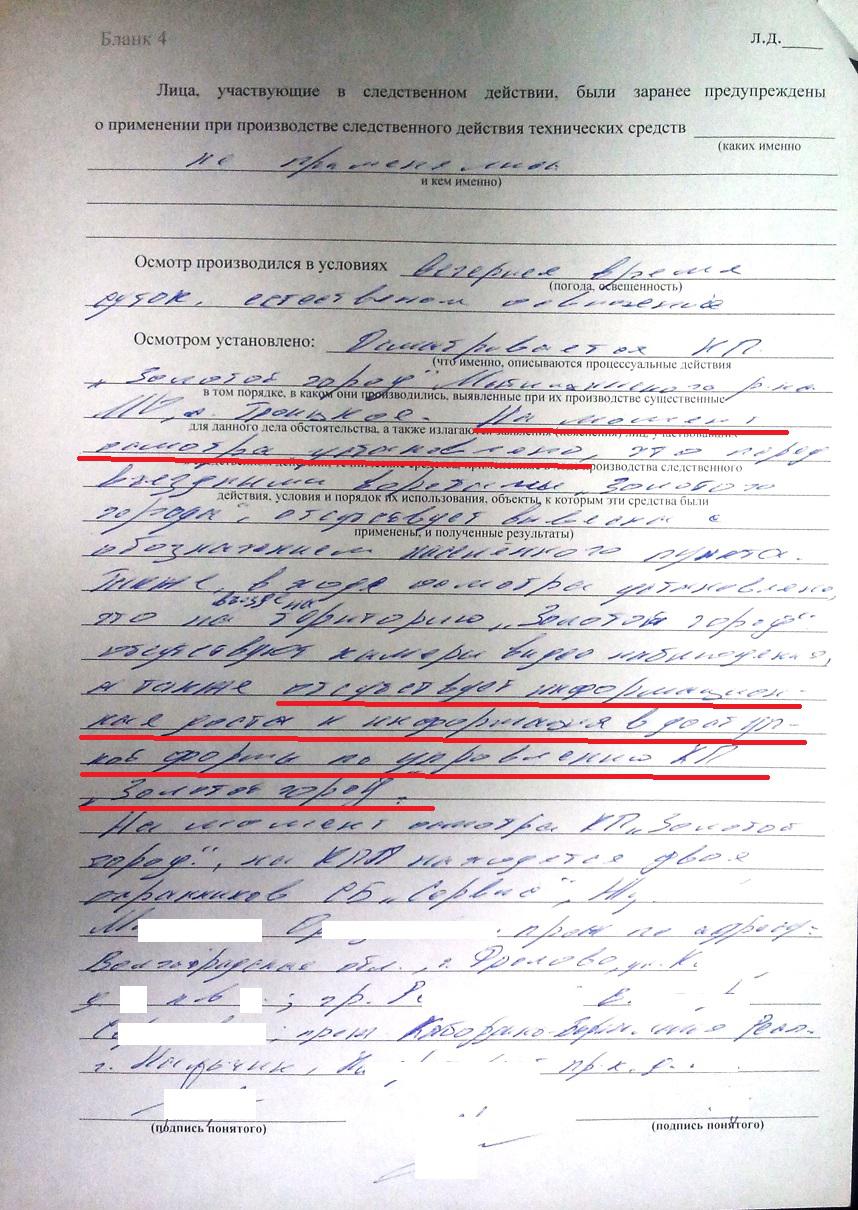 Бланк 4
Л.Д.
Лица, участвующие в следственном действии, были заранее предупреждены
о применении при производстве следственного действия технических средств
(каких именно
не применялись
и кем именно)
Осмотр производился в условиях вечернее время
(погода, освещенность)
суток, естественом освещение
Осмотром установлено: Осматривается КП
(что именно, описываются процессуальные действия
„Золотой город" Мытищинского р-на
в том порядке, в каком они производились, выявленные при их производстве существенные
МО, д. Троицкое. На момент
для данного дела обстоятельства, а также излагаются заявления (пояснения) лиц, участвовавших
осмотра установлено, что перед
производства следственного
въездными воротами „Золотого
действия, условия и порядок их использования, объекты, к которым эти средства были
города", отсутствует вывеска с
применены, и полученные результаты)
обозначением населенного пункта.
Также, в ходе осмотра установлено,
въезде на
что на территорию „Золотой город"
отсутствуют камеры видео наблюдения,
а также отсутствует информацион-
ная доска и информация в доступ-
ной форме по управлению КП
„Золотой город".
На момент осмотра КП „Золотой
город", на КПП находятся двое
охранников СБ „Сервис",
прож по адресу:
Волгоградская обл., г. Фролово, ул. К
д. кв. ; гр. Р.
; прож. Кабардино-Балкария Респ.
г. Нальчик,
(подпись понятого)
(подпись понятого)